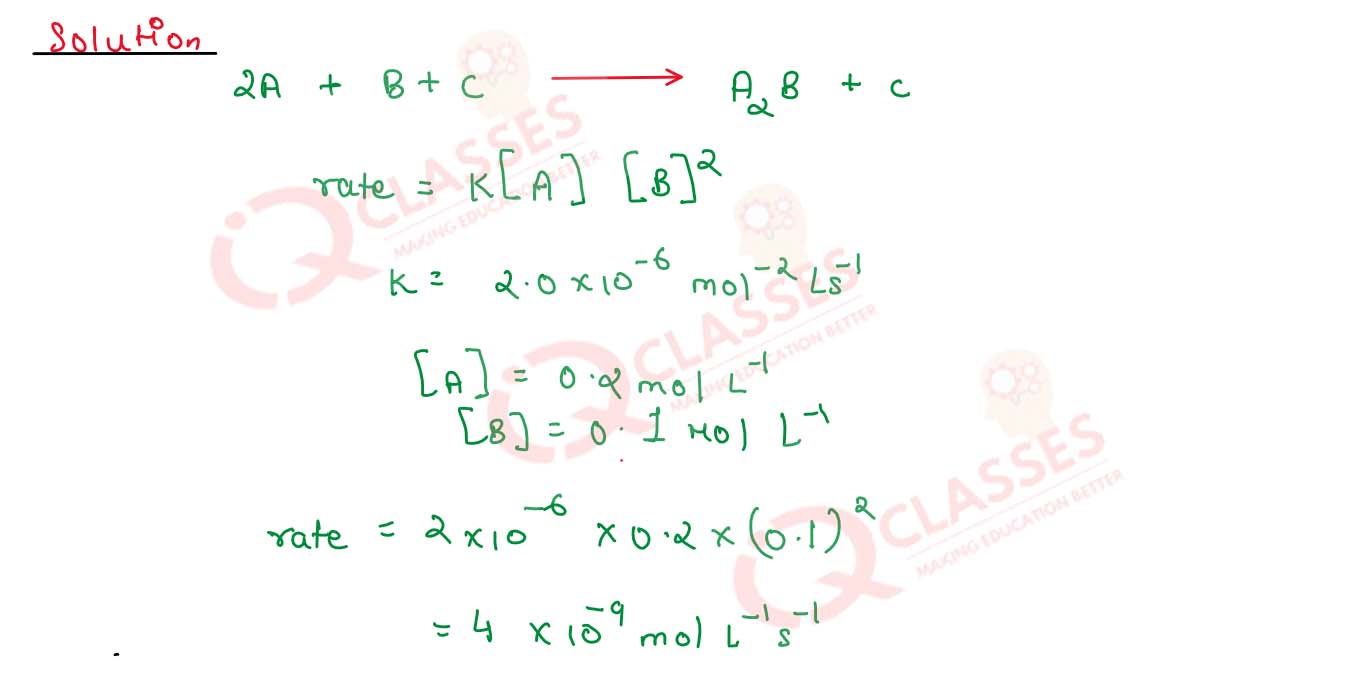 Solution
2A + B + C ⟶ A₂B + c
rate = K[A] [B]²
K = 2.0 × 10⁻⁶ mol⁻² L s⁻¹
[A] = 0.2 mol L⁻¹
[B] = 0.1 mol L⁻¹
rate = 2 × 10⁻⁶ × 0.2 × (0.1)²
= 4 × 10⁻⁹ mol L⁻¹ s⁻¹
iQ CLASSES
MAKING EDUCATION BETTER
iQ CLASSES
MAKING EDUCATION BETTER
iQ CLASSES
MAKING EDUCATION BETTER